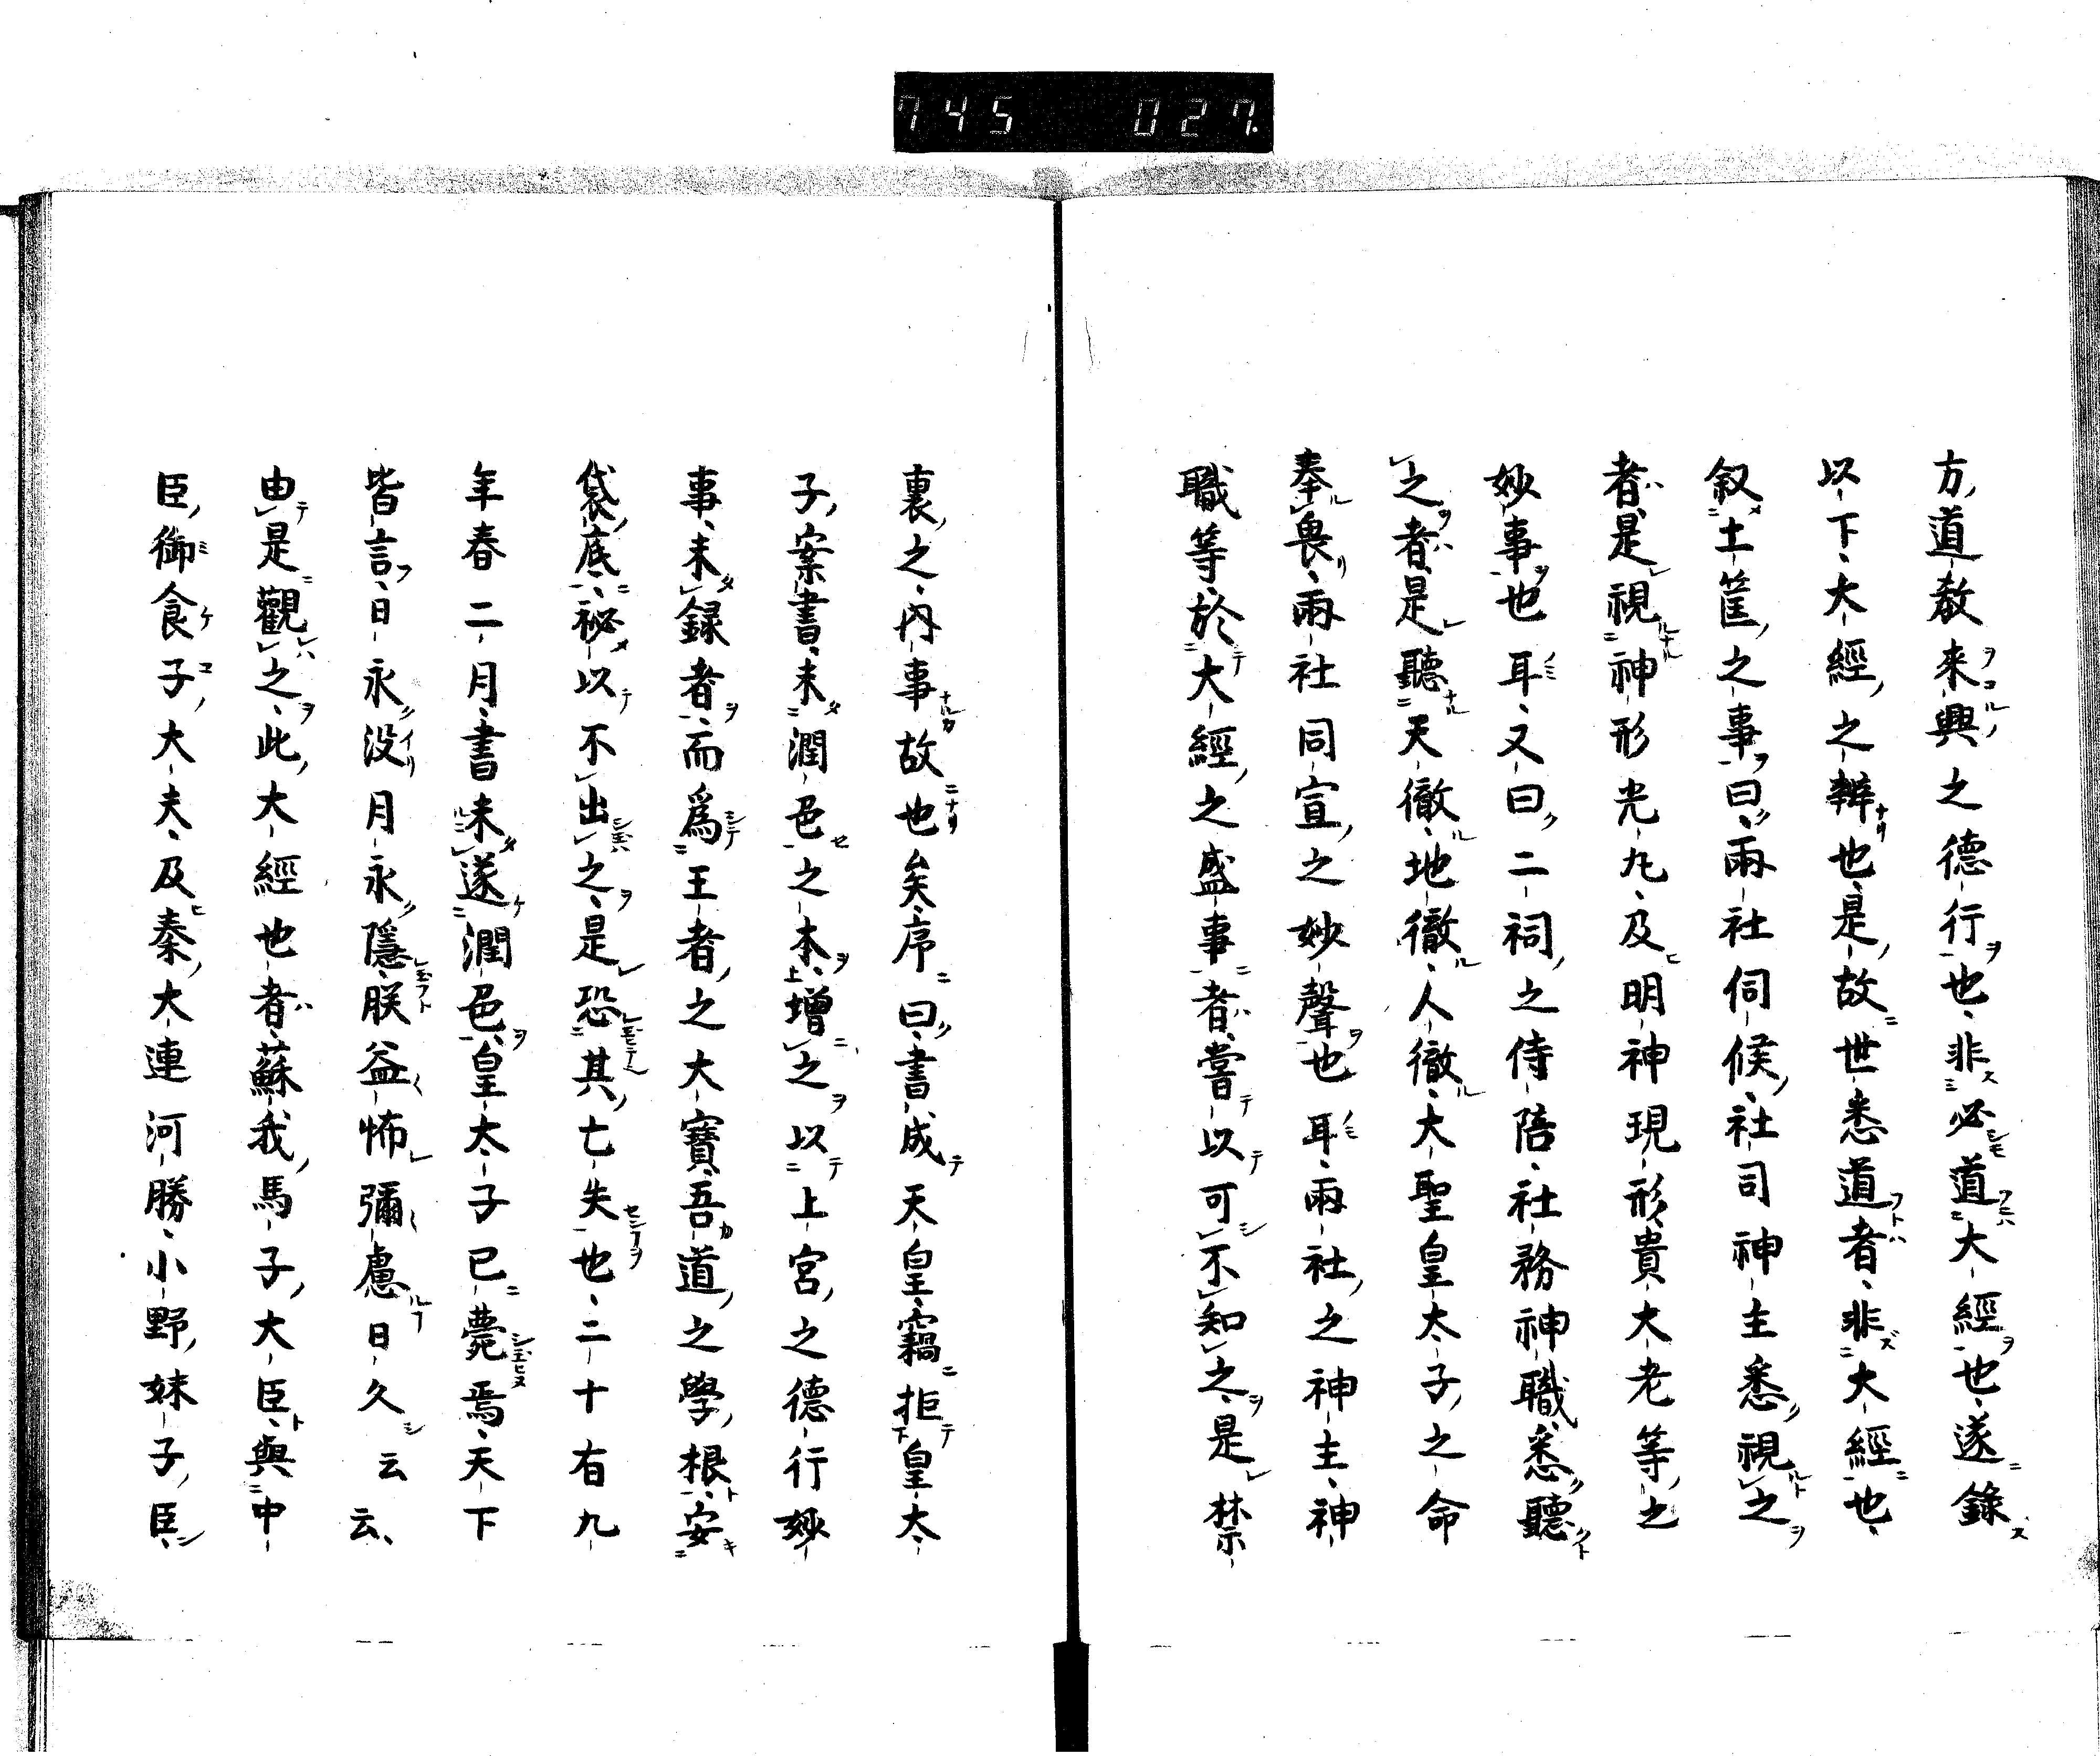 745 027.
方道教來興之德行也非必道大經也遂錄
以下大經之辨也是故世悉道者非大經也
叙土筐之事曰兩社伺候社司神主悉視之
者是視神形光九及明神現形貴大老等之
妙事也耳又曰二祠之侍陪社務神職悉聽
之者是聽天徹地徹人徹大聖皇太子之命
奉畏兩社同宣之妙聲也耳兩社之神主神
職等於大經之盛事者嘗以可不知之是禁
裏之内事故也矣序曰書成天皇竊拒皇太
子案書未潤色之本増之以上宮之德行妙
事未録者而爲王者之大寶吾道之學根安
袋底祕以不出之是恐其亡失也二十有九
年春二月書未遂潤色皇太子已薨焉天下
皆言日永没月永隱朕益怖彌慮日久云云
由是觀之此大經也者蘇我馬子大臣與中
臣御食子大夫及秦大連河勝小野妹子臣